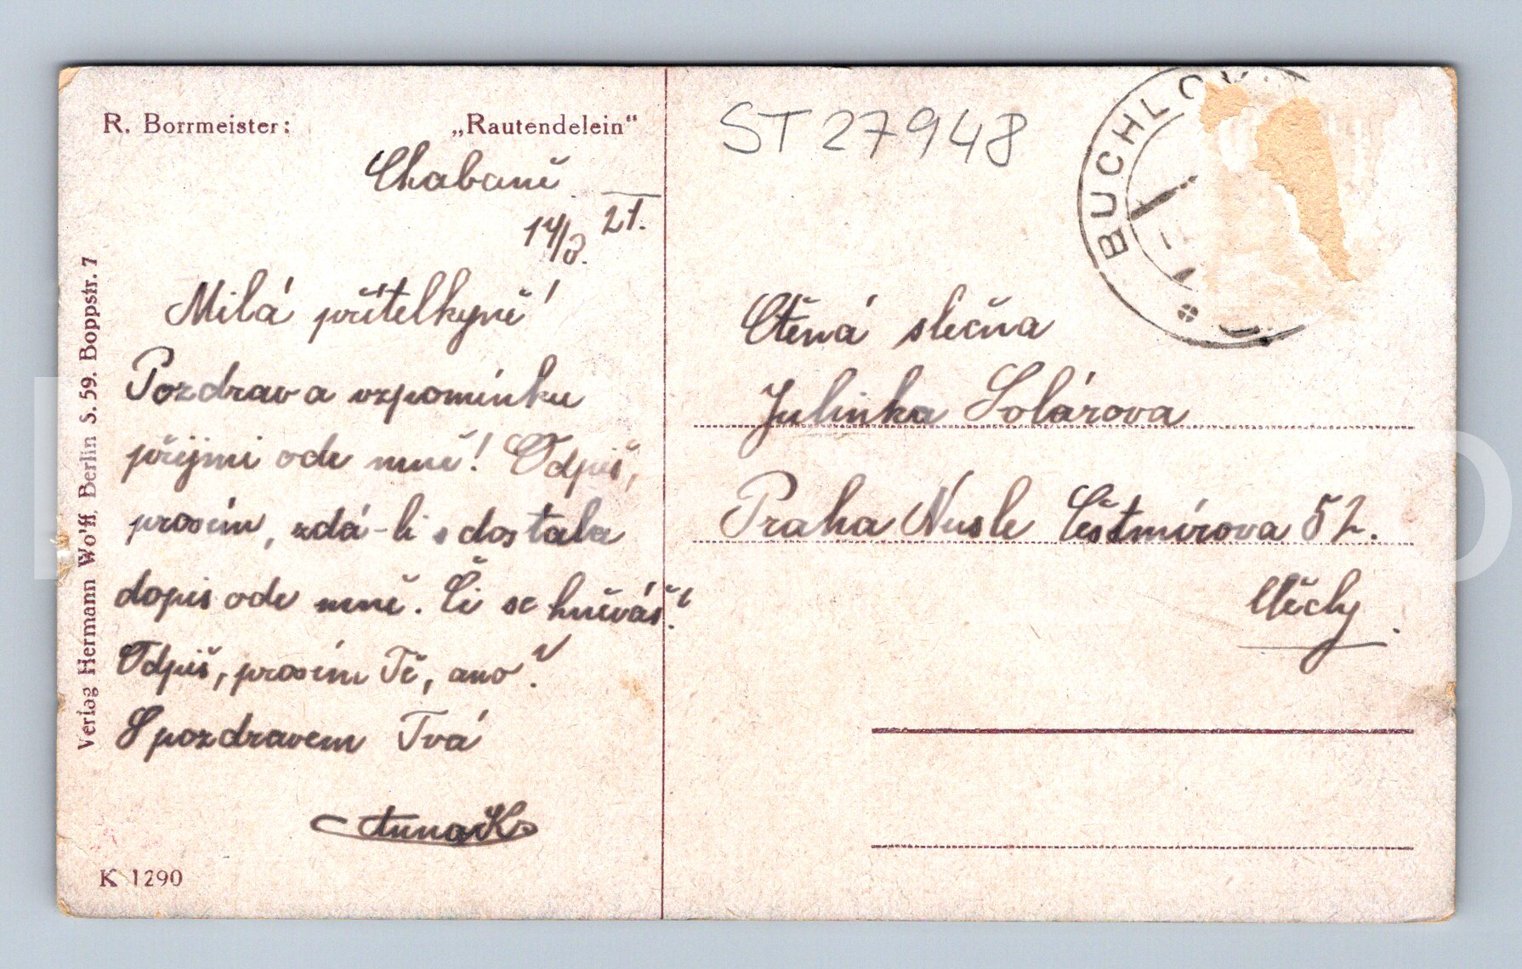 R. Borrmeister: „Rautendelein“
Chabaně
14/3. 21.
Milá přítelkyně!
Pozdrav a vzpomínku
přijmi ode mně! Odpiš,
prosím, zdá-li s dostala
dopis ode mně. Či se hněváš?
Odpiš, prosím Tě, ano?
S pozdravem Tvá
AnnaK
K 1290
Verlag Hermann Wolff, Berlin S. 59. Boppstr. 7
ST27948
BUCHLOV
Ctěná slečna
Julinka Solárova
Praha Nusle Čestmírova 52.
Čechy.